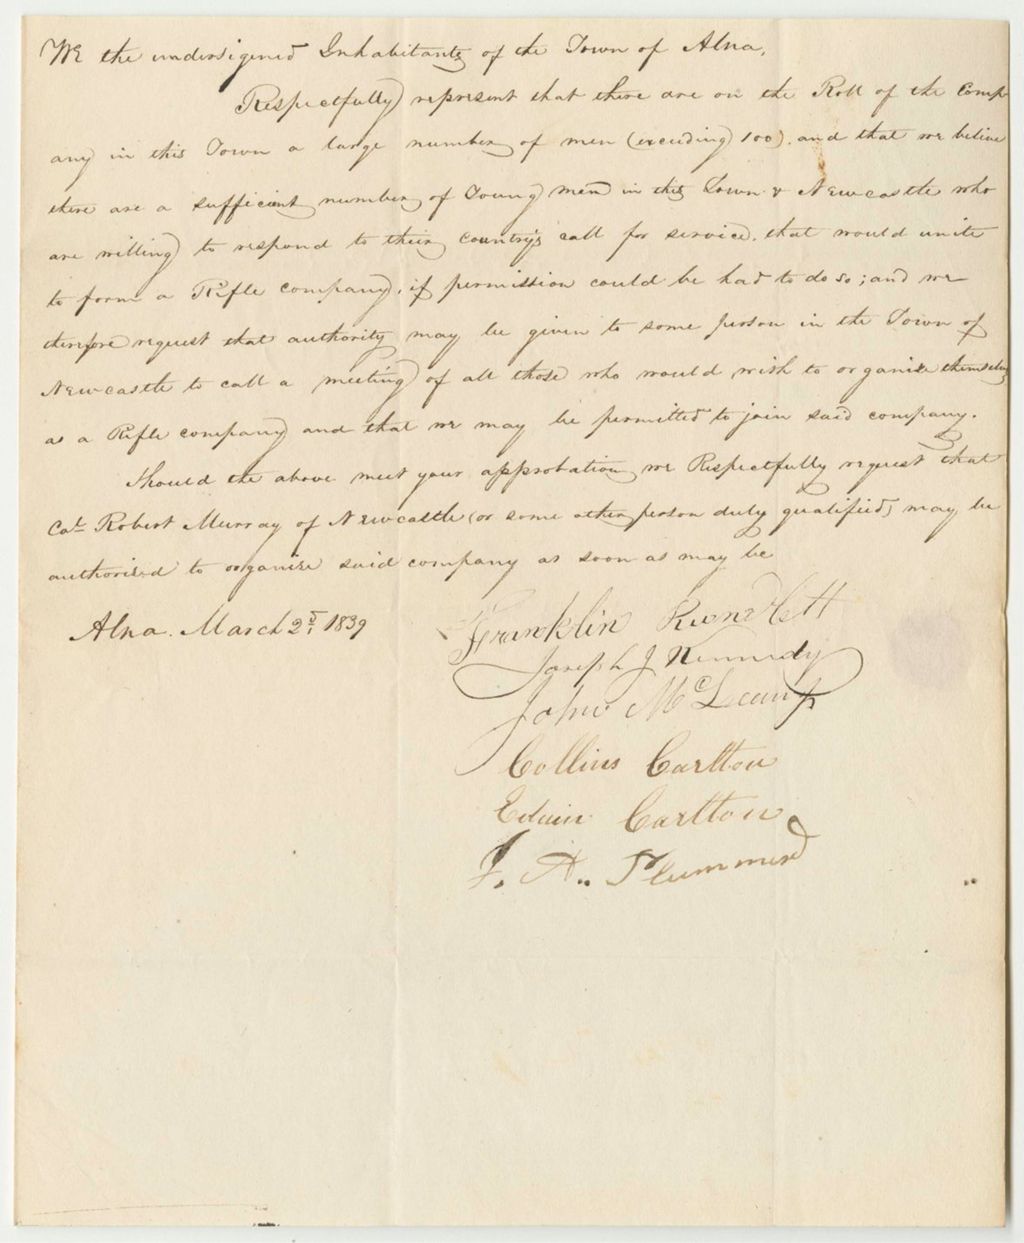 We the undersigned Inhabitants of the Town of Alna,
Respectfully represent that there are on the Roll of the Comp-
any in this Town a large number of men (exceeding 100). and that we believe
there are a sufficient number of Young men in this Town & Newcastle who
are willing to respond to their Country's call for service. that would unite
to form a Rifle company, if permission could be had to do so; and we
therefore request that authority may be given to some person in the Town of
Newcastle to call a meeting of all those who would wish to organise themselves
as a Rifle company and that we may be permitted to join said company.
Should the above meet your approbation, we Respectfully request that
Cat Robert Murray of Newcastle (or some other person duly qualified) may be
authorised to organise said company as soon as may be
Alna. March 2d, 1839
Franklin Rundlett
Joseph J Kennedy
John McLean
Collins Carlton
Edwin Carlton
J. A. Plummer